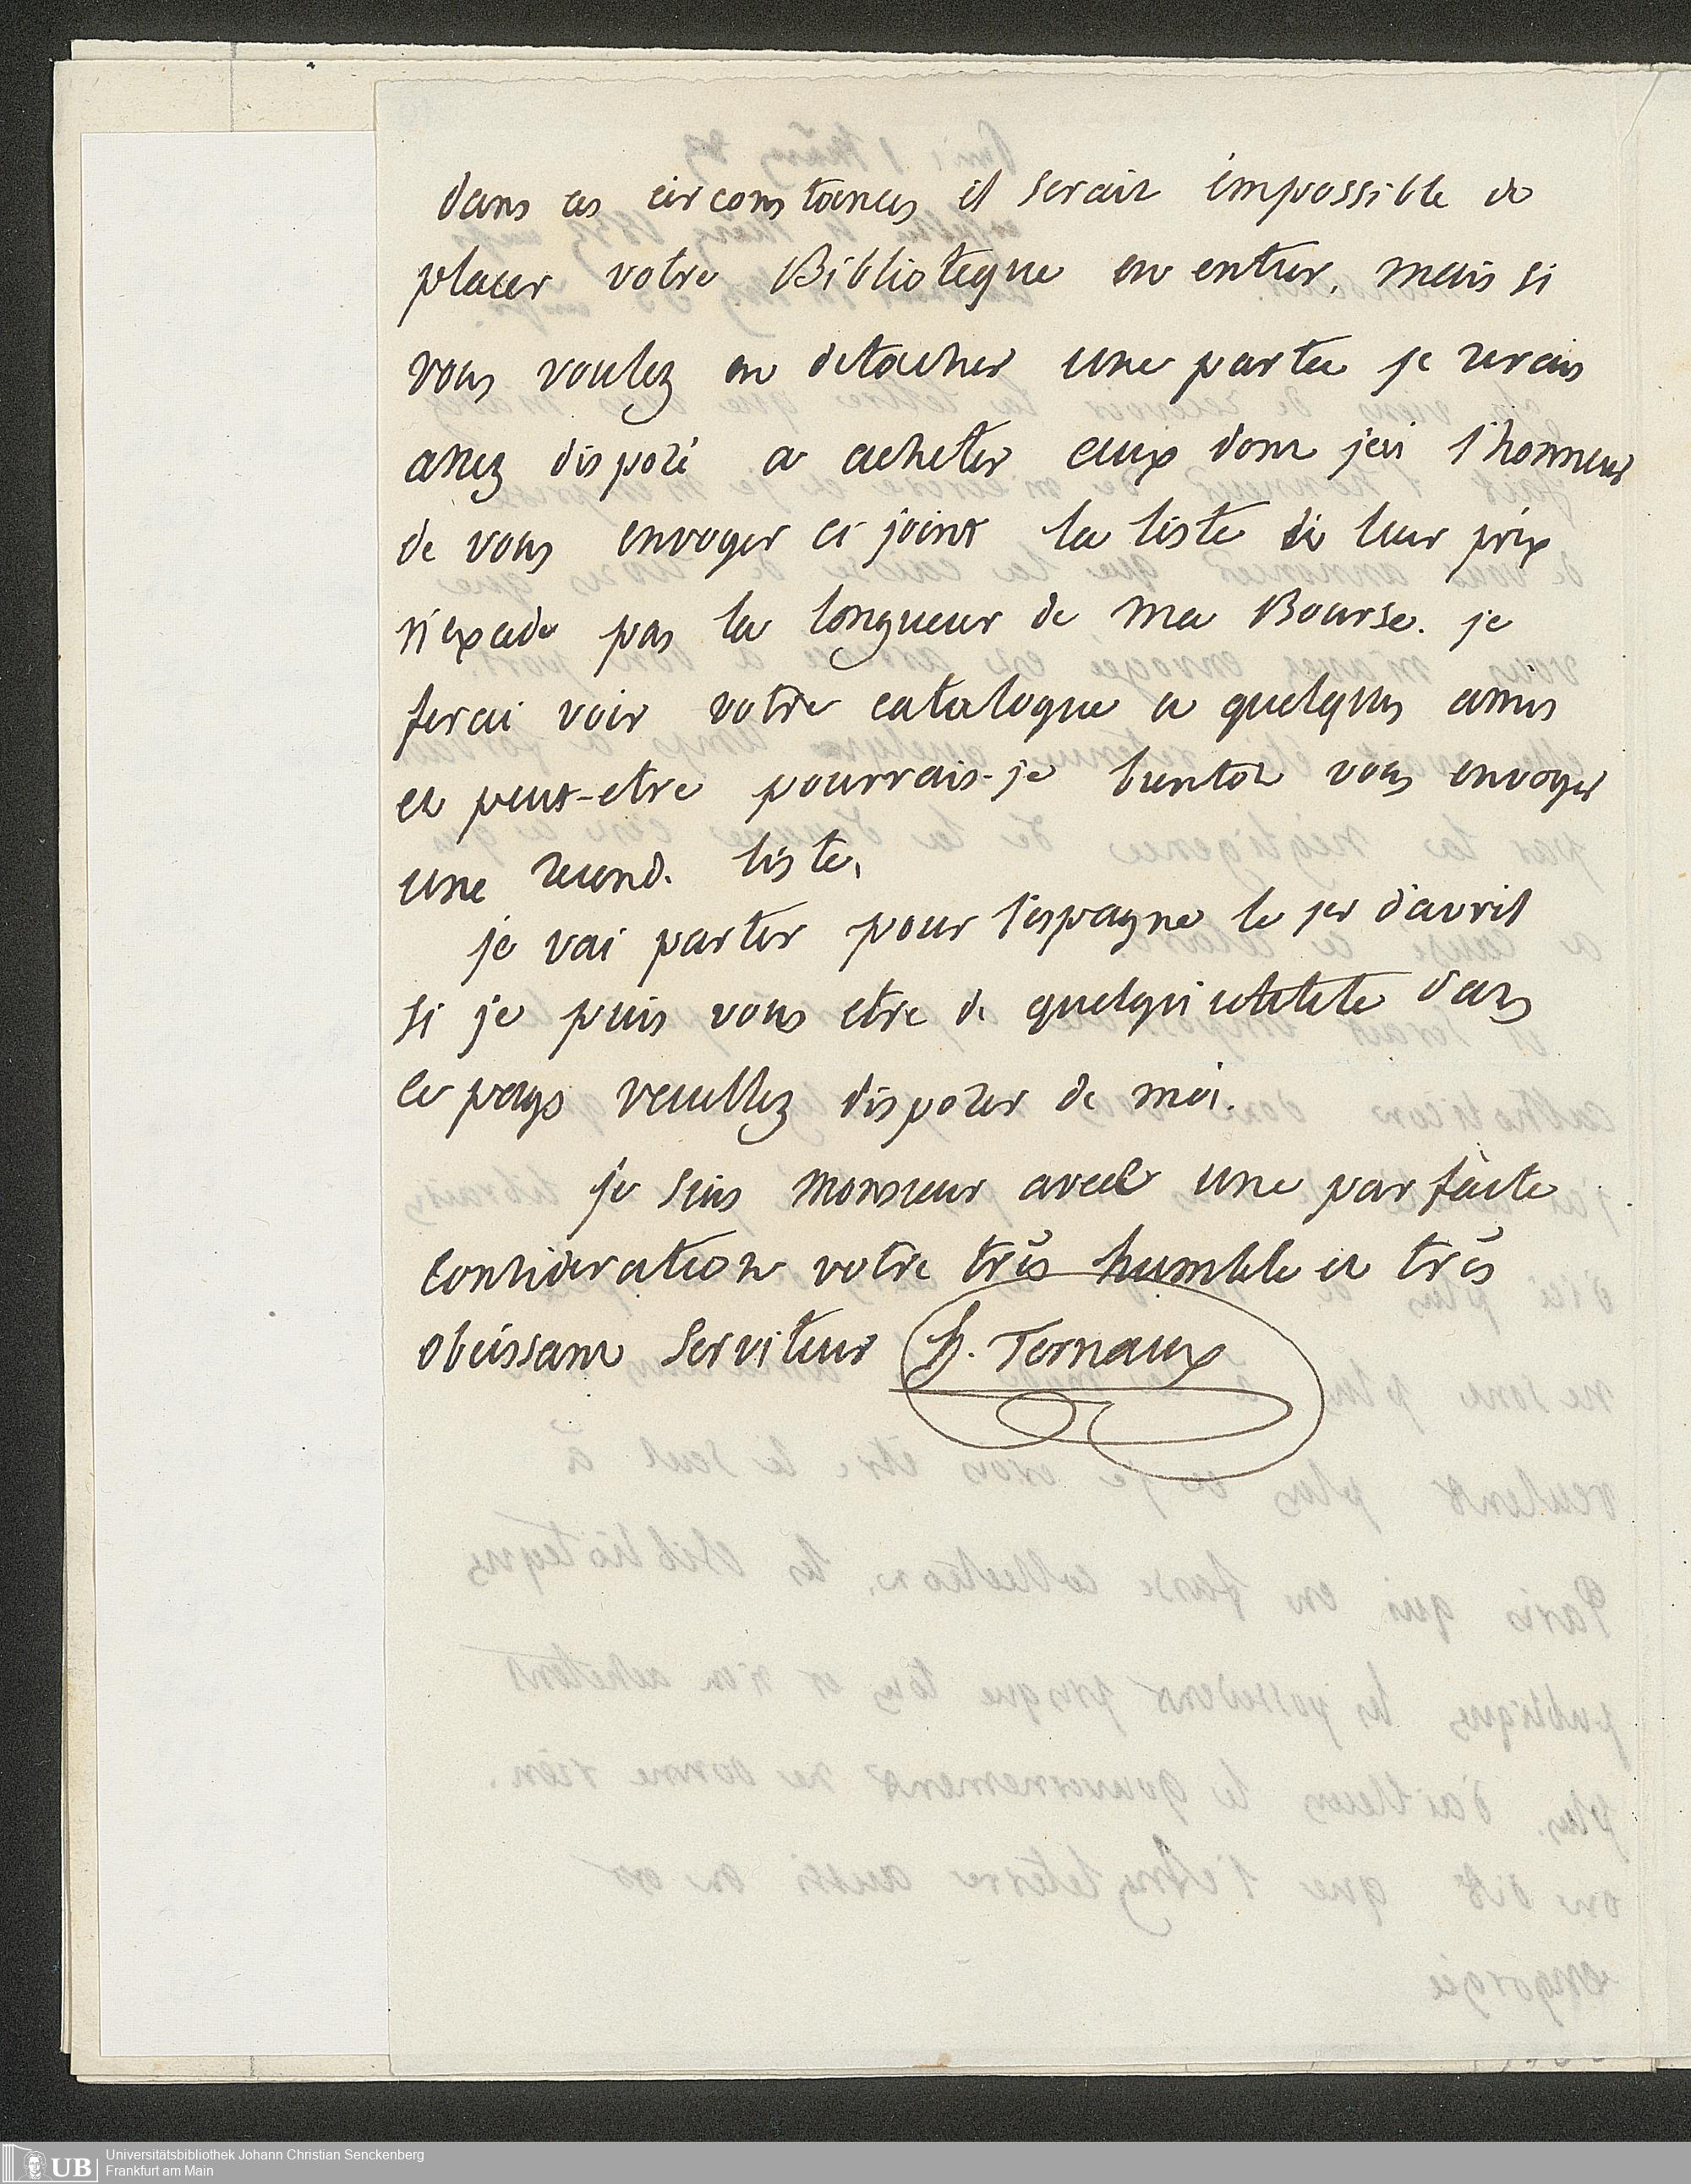 dans ces circonstances il serait impossible de
placer votre Biblioteque en entier, mais si
vous voulez en detacher une partie je serais
assez disposé a acheter ceux dont j'ai l'honneur
de vous envoyer ci joint la liste si leur prix
n'excede pas la longueur de ma Bourse. je
ferai voir votre catalogue a quelques amis
et peut-etre pourrais-je bientot vous envoyer
une second. liste.
je vai partir pour l'espagne le 1er d'avril
si je puis vous etre de quelqu'utilite dans
ce pays veuillez disposer de moi.
je suis monsieur avec une parfaite
consideration votre très humble et très
obeissant serviteur H. Ternaux
UB Universitätsbibliothek Johann Christian Senckenberg
Frankfurt am Main